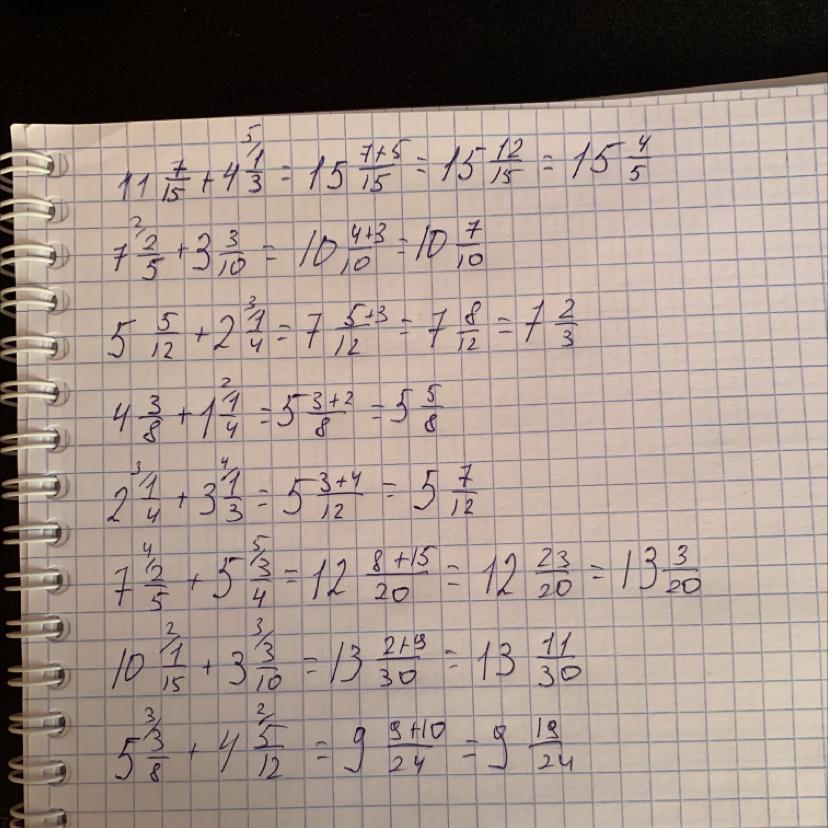 11 7/15 + 4 ⁵⁄1/3 = 15 7+5/15 = 15 12/15 = 15 4/5
7 ²⁄2/5 + 3 3/10 = 10 4+3/10 = 10 7/10
5 5/12 + 2 ³⁄1/4 = 7 5+3/12 = 7 8/12 = 7 2/3
4 3/8 + 1 ²⁄1/4 = 5 3+2/8 = 5 5/8
2 ³⁄1/4 + 3 ⁴⁄1/3 = 5 3+4/12 = 5 7/12
7 ⁴⁄2/5 + 5 ⁵⁄3/4 = 12 8+15/20 = 12 23/20 = 13 3/20
10 ²⁄1/15 + 3 ³⁄3/10 = 13 2+9/30 = 13 11/30
5 ³⁄3/8 + 4 ²⁄5/12 = 9 9+10/24 = 9 19/24